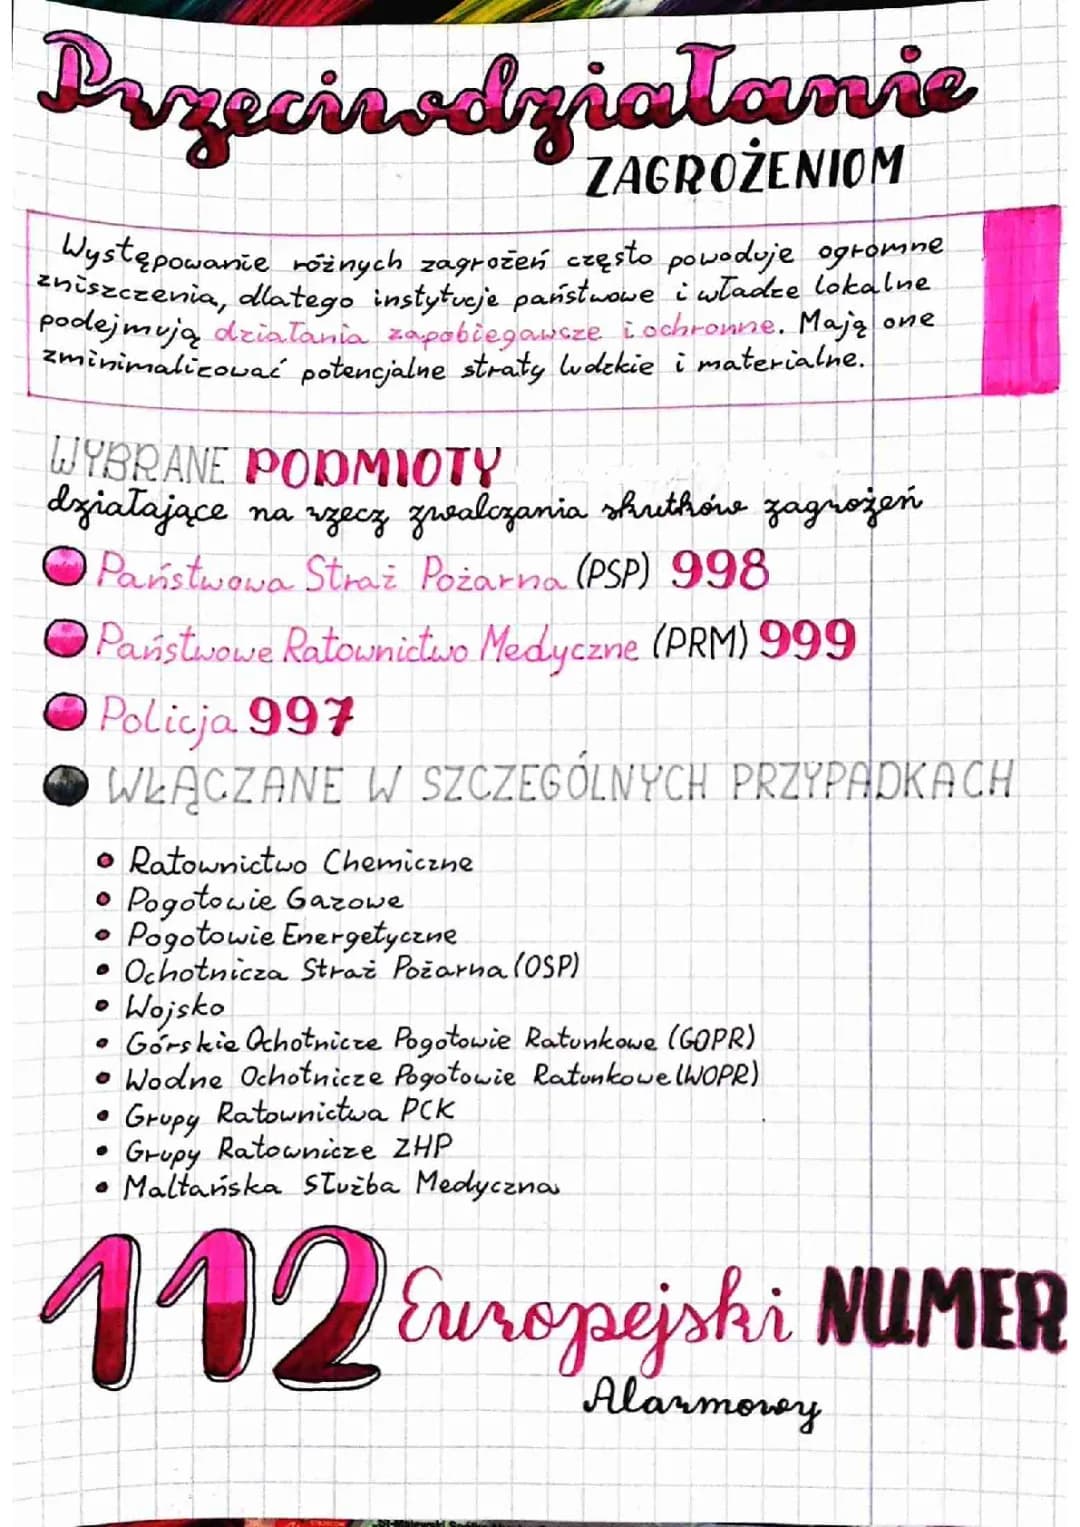 Przeciwdziałanie
ZAGROŻENIOM
Występowanie różnych zagrożeń często powoduje ogromne
zniszczenia, dlatego instytucje państwowe i władze lokalne
podejmują działania zapobiegawcze i ochronne. Mają one
zminimalizować potencjalne straty ludzkie i materialne.
WYBRANE PODMIOTY
działające na rzecz zwalczania skutków zagrożeń
Państwowa Straż Pożarna (PSP) 998
Państwowe Ratownictwo Medyczne (PRM) 999
Policja 997
WŁĄCZANE W SZCZEGÓLNYCH PRZYPADKACH
Ratownictwo Chemiczne
Pogotowie Gazowe
Pogotowie Energetyczne
Ochotnicza Straż Pożarna (OSP)
Wojsko
Górskie Ochotnicze Pogotowie Ratunkowe (GOPR)
Wodne Ochotnicze Pogotowie Ratunkowe (WOPR)
Grupy Ratownictwa PCK
Grupy Ratownicze ZHP
Maltańska Służba Medyczna
112 Europejski NUMER
Alarmowy